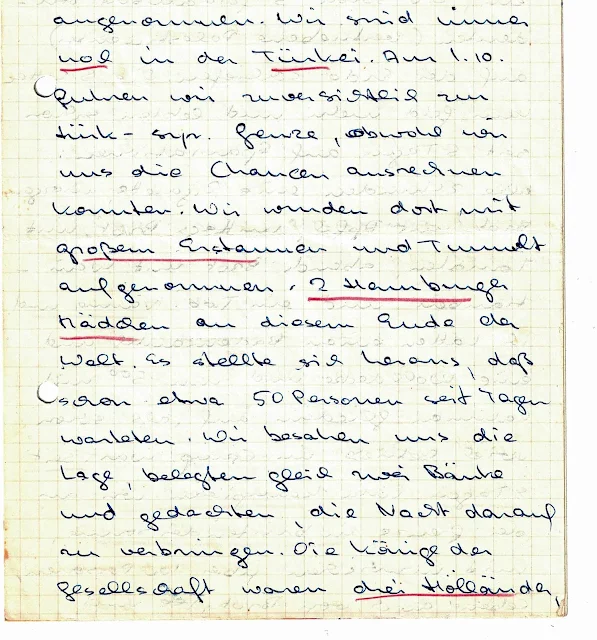 angenommen. Wir sind immer
noch in der Türkei. Am 1.10.
fuhren wir zuversichtlich zur
türk-syr. Grenze, obwohl wir
uns die Chancen ausrechnen
konnten. Wir wurden dort mit
großem Erstaunen und Tumult
aufgenommen. 2 Hamburger
Mädchen an diesem Ende der
Welt. Es stellte sich heraus, daß
schon etwa 50 Personen seit Tagen
warteten. Wir besahen uns die
Lage, belegten gleich zwei Bänke
und gedachten, die Nacht darauf
zu verbringen. Die Könige der
Gesellschaft waren drei Holländer,